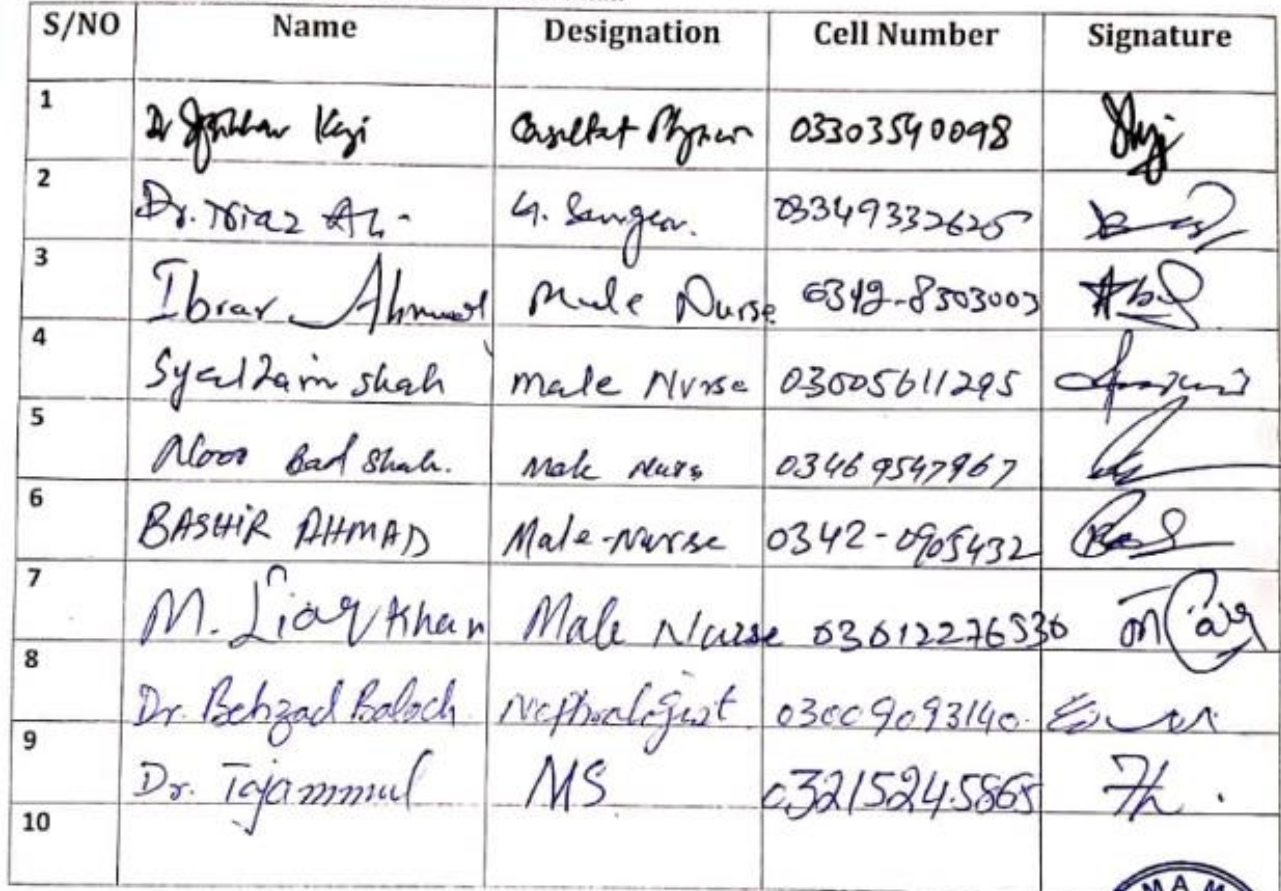 S/NO Name Designation Cell Number Signature
1 Dr Kazi 03303540098
2 Dr. Niaz Ali G. Surgeon. 03349332625
3 Ibrar Ahmad Male Nurse 0342-8303003
4 Syed Zain Shah Male Nurse 03005611295
5 Noor Bad Shah. Male Nurs 03469547967
6 BASHIR AHMAD Male-Nurse 0342-0905432
7 M. Liaq Khan Male Nurse 03012276530
8 Dr. Behzad Baloch Nephrologist 03009093140
9 Dr. Tajammul MS 03215245865
10